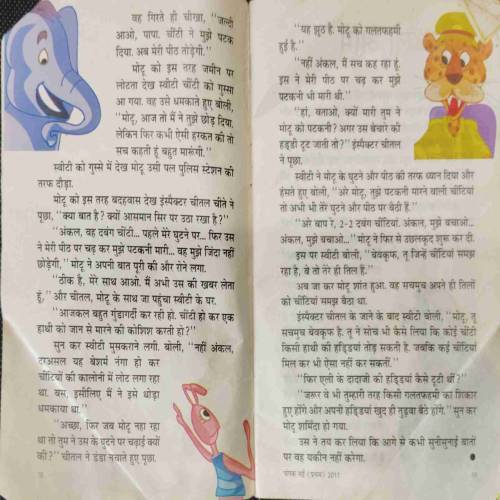 वह गिरते ही चीखा, ‘‘जल्दी
आओ, पापा. चींटी ने मुझे पटक
दिया. अब मेरी पीठ तोड़ेगी.’’
मोटू को इस तरह जमीन पर
लोटता देख स्वीटी चींटी को गुस्सा
आ गया. वह उसे धमकाते हुए बोली,
‘‘मोटू, आज तो मैं ने तुझे छोड़ दिया,
लेकिन फिर कभी ऐसी हरकत की तो
सच कहती हूं बहुत मारूंगी.’’
स्वीटी को गुस्से में देख मोटू उसी पल पुलिस स्टेशन की
तरफ दौड़ा.
मोटू को इस तरह बदहवास देख इंस्पैक्टर चीतल चीते ने
पूछा, ‘‘क्या बात है? क्यों आसमान सिर पर उठा रखा है?’’
‘‘अंकल, वह दबंग चींटी... पहले मेरे घुटने पर... फिर उस
ने मेरी पीठ पर चढ़ कर मुझे पटकनी मारी... वह मुझे जिंदा नहीं
छोड़ेगी,’’ मोटू ने अपनी बात पूरी की और रोने लगा.
‘‘ठीक है, मेरे साथ आओ. मैं अभी उस की खबर लेता
हूं,’’ और चीतल, मोटू के साथ जा पहुंचा स्वीटी के घर.
‘‘आजकल बहुत गुंडागर्दी कर रही हो. चींटी हो कर एक
हाथी को जान से मारने की कोशिश करती हो?’’
सुन कर स्वीटी मुसकराने लगी. बोली, ‘‘नहीं अंकल,
दरअसल यह बेशर्म नंगा हो कर
चींटियों की कालोनी में लोट लगा रहा
था. बस, इसीलिए मैं ने इसे थोड़ा
धमकाया था.’’
‘‘अच्छा, फिर जब मोटू नहा रहा
था तो तुम ने उस के घुटने पर चढ़ाई क्यों
की?’’ चीतल ने डंडा नचाते हुए पूछा.
‘‘यह झूठ है. मोटू को गलतफहमी
हुई है.’’
‘‘नहीं अंकल, मैं सच कह रहा हूं.
इस ने मेरी पीठ पर चढ़ कर मुझे
पटकनी भी मारी थी.’’
‘‘हां, बताओ, क्यों मारी तुम ने
मोटू को पटकनी? अगर उस बेचारे की
हड्डी टूट जाती तो?’’ इंस्पैक्टर चीतल
ने पूछा.
स्वीटी ने मोटू के घुटने और पीठ की तरफ ध्यान दिया और
हंसते हुए बोली, ‘‘अरे मोटू, तुझे पटकनी मारने वाली चींटियां
तो अभी भी तेरे घुटने और पीठ पर बैठी हैं.’’
‘‘अरे बाप रे, 2-2 दबंग चींटियां. अंकल, मुझे बचाओ...
अंकल, मुझे बचाओ...’’ मोटू ने फिर से उछलकूद शुरू कर दी.
इस पर स्वीटी बोली, ‘‘बेवकूफ, तू जिन्हें चींटियां समझ
रहा है, वे तो तेरे ही तिल हैं.’’
अब जा कर मोटू शांत हुआ. वह सचमुच अपने ही तिलों
को चींटियां समझ बैठा था.
इंस्पैक्टर चीतल के जाने के बाद स्वीटी बोली, ‘‘मोटू, तू
सचमुच बेवकूफ है. तू ने सोच भी कैसे लिया कि कोई चींटी
किसी हाथी की हड्डियां तोड़ सकती है. जबकि कई चींटियां
मिल कर भी ऐसा नहीं कर सकतीं.’’
‘‘फिर एली के दादाजी की हड्डियां कैसे टूटी थीं?’’
‘‘जरूर वे भी तुम्हारी तरह किसी गलतफहमी का शिकार
हुए होंगे और अपनी हड्डियां खुद ही तुड़वा बैठे होंगे.’’ सुन कर
मोटू शर्मिंदा हो गया.
उस ने तय कर लिया कि आगे से कभी सुनीसुनाई बातों
पर वह यकीन नहीं करेगा.
चंपक मई (प्रथम) 2011